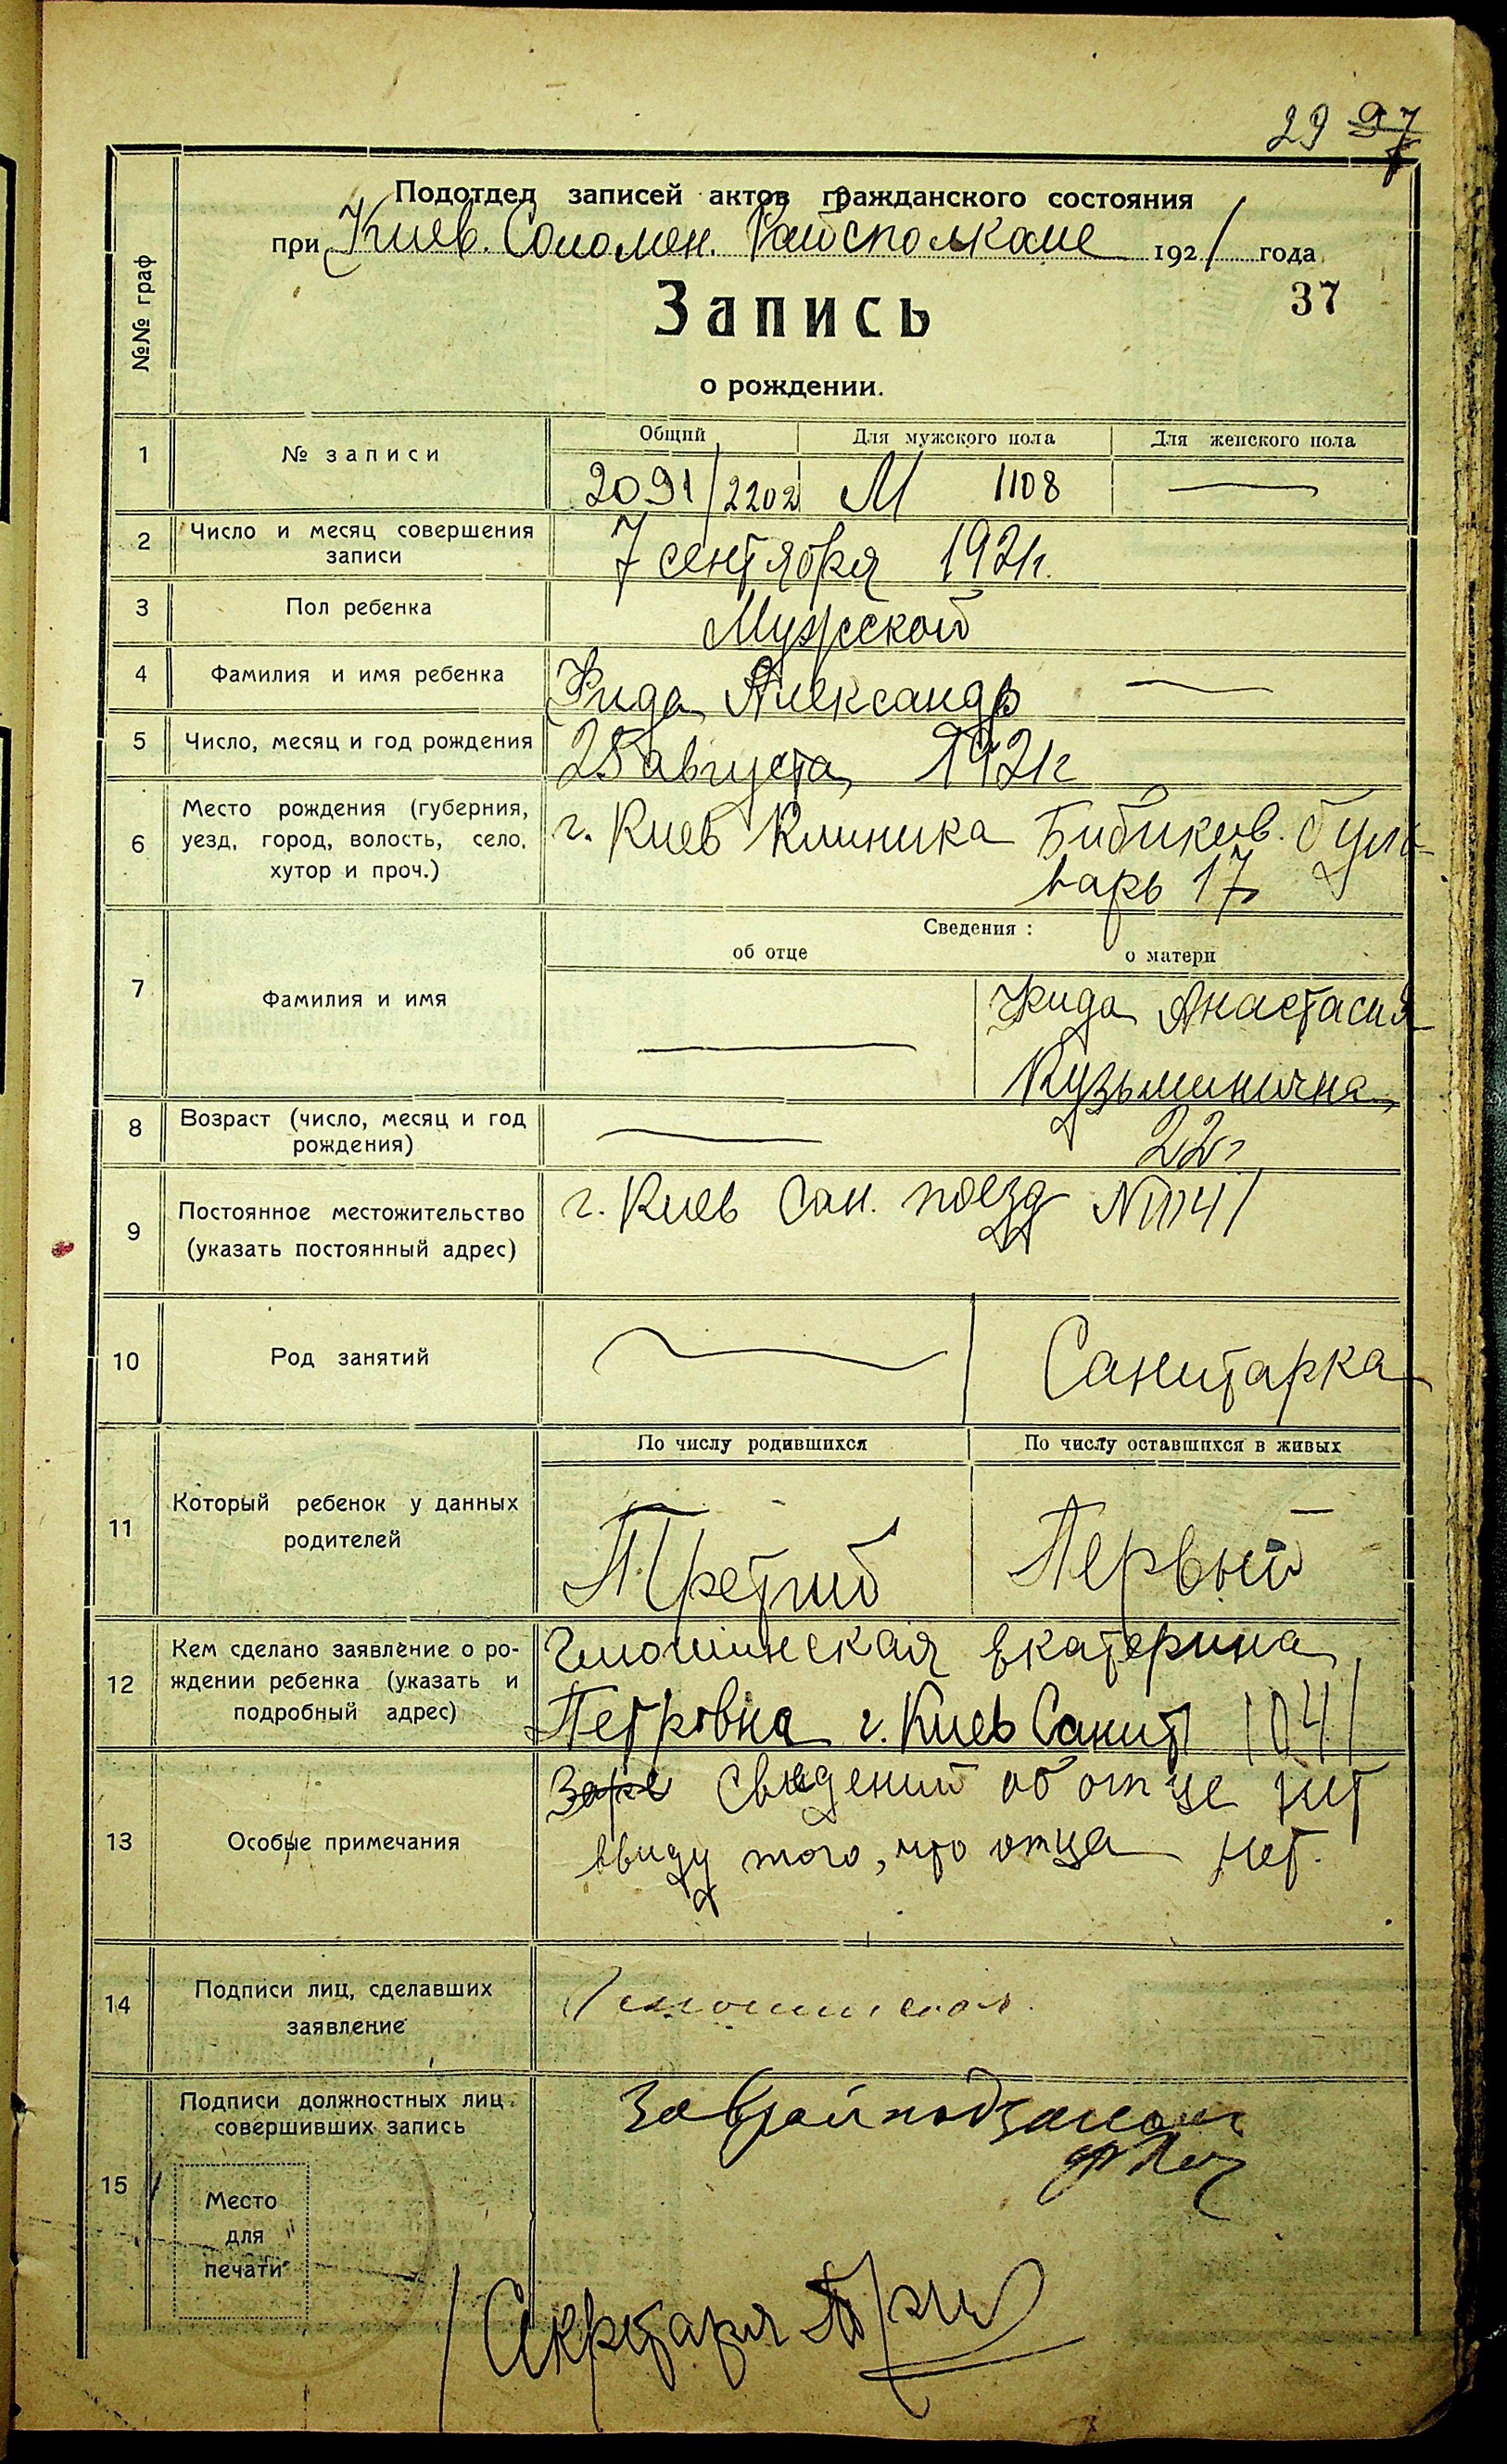 29 97
Подотдел записей актов гражданского состояния
при Киев. Соломен. Райисполкоме 1921 года
№№ граф
Запись
37
о рождении.
1 № записи
Общий Для мужского пола Для женского пола
2091/2202 М 1108 —
2 Число и месяц совершения
записи
7 сентября 1921г.
3 Пол ребенка
Мужской
4 Фамилия и имя ребенка
Александр —
5 Число, месяц и год рождения
25 августа 1921г
6 Место рождения (губерния,
уезд, город, волость, село,
хутор и проч.)
г. Киев Клиника Бибиков. буль-
варь 17
Сведения :
об отце о матери
7 Фамилия и имя
— Анастасия
Кузьминична
8 Возраст (число, месяц и год
рождения)
— 22г
9 Постоянное местожительство
(указать постоянный адрес)
г. Киев Сан. поезд
10 Род занятий
— Санитарка
11 Который ребенок у данных
родителей
По числу родившихся По числу оставшихся в живых
Третий Первый
12 Кем сделано заявление о ро-
ждении ребенка (указать и
подробный адрес)
Екатерина
Петровна г. Киев Санит 1041
13 Особые примечания
Сведений об отце нет
ввиду того, что отца нет.
14 Подписи лиц, сделавших
заявление
15 Подписи должностных лиц
совершивших запись
Место
для
печати
Секретаря